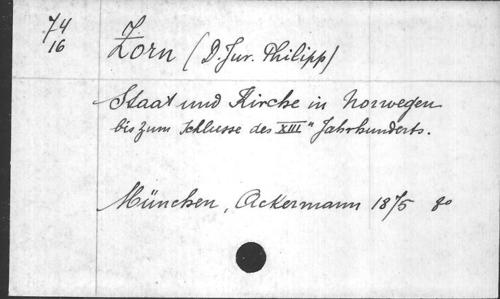 74
16
Zorn (D. Jur. Philipp)
Staat und Kirche in Norwegen
bis zum Schlusse des XIII" Jahrhunderts.
München, Ackermann 1875 8o